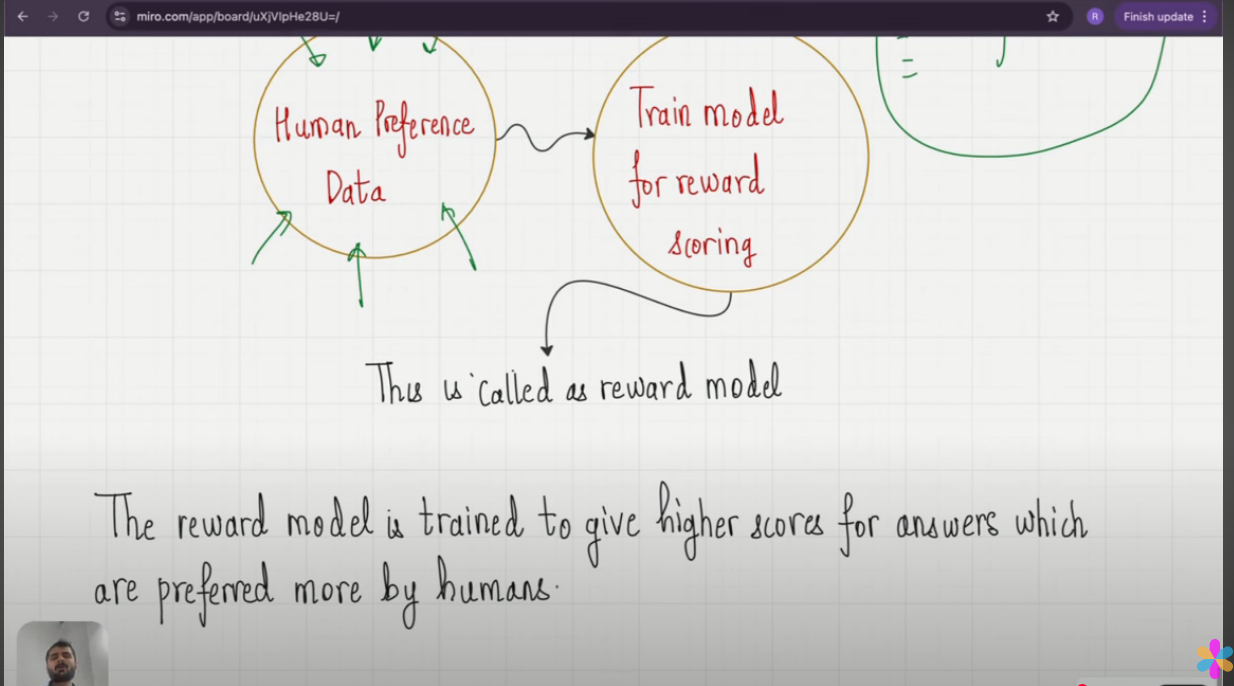 miro.com/app/board/uXjVIpHe28U=/
R
Finish update
Human Preference
Data
Train model
for reward
scoring
This is called as reward model
The reward model is trained to give higher scores for answers which
are preferred more by humans.